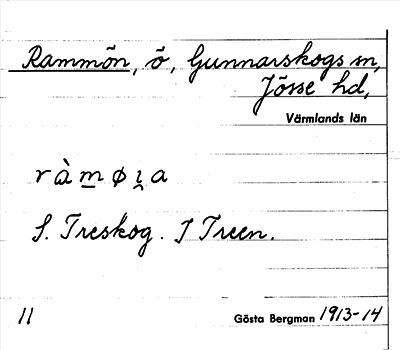 Rammön, ö, Gunnarskogs sn,
Jösse hd,
Värmlands län
r ὰ m̲ ø ı̯ a
S. Treskog. I Treen.
11
Gösta Bergman 1913-14